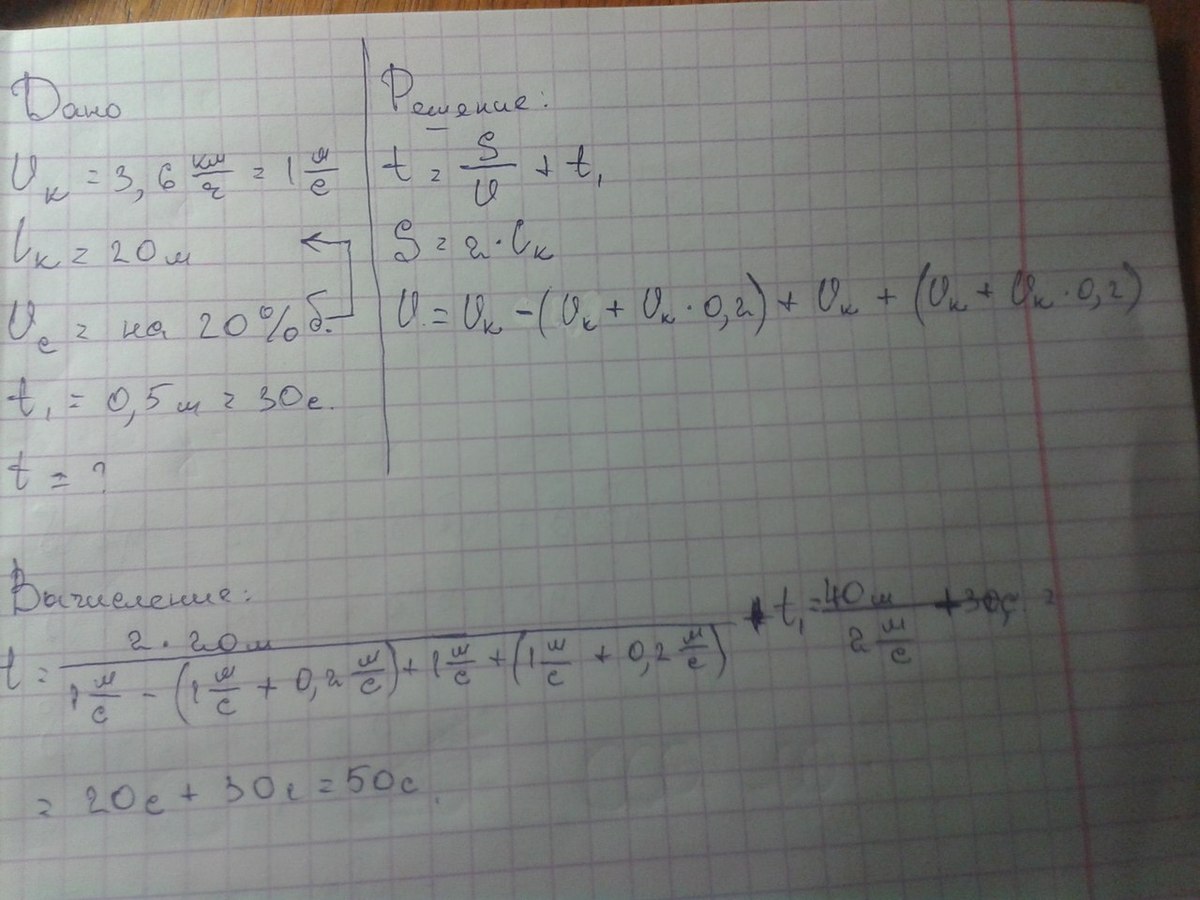 Дано
υк = 3,6 км/ч = 1 м/с
lк = 20 м
υс = на 20% б.
t₁ = 0,5 м = 30 с.
t = ?
Решение:
t = S/υ + t₁
S = 2 · lк
υ = υк - (υк + υк · 0,2) + υк + (υк + υк · 0,2)
Вычисление:
t = 2 · 20м / (1 м/с - (1 м/с + 0,2 м/с) + 1 м/с + (1 м/с + 0,2 м/с)) + t₁ = 40 м / 2 м/с + 30с =
= 20с + 30с = 50с.